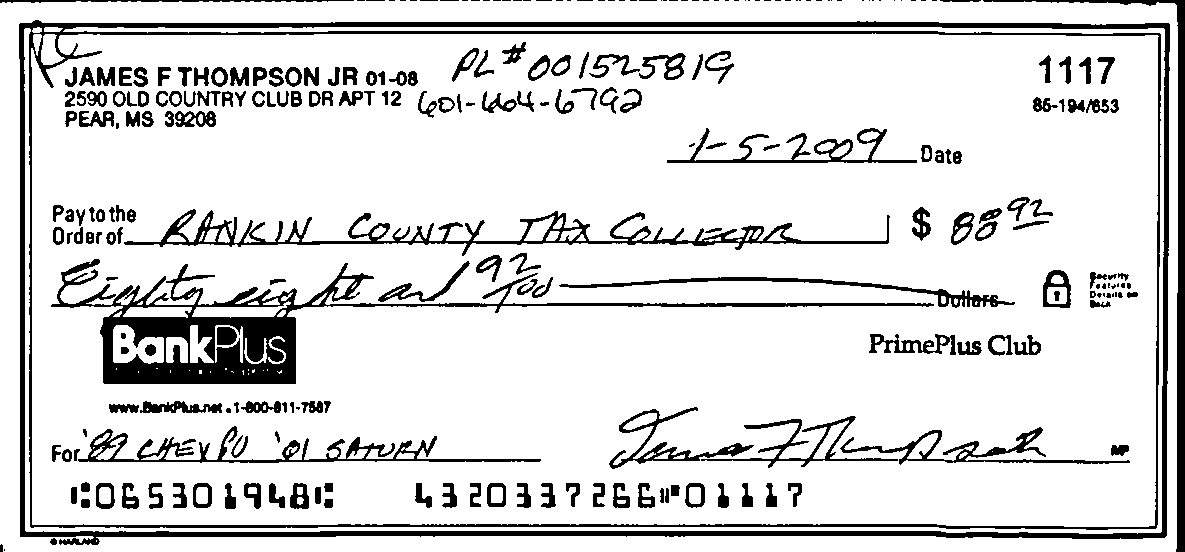 JAMES F THOMPSON JR 01-08 PL# 001525819
2590 OLD COUNTRY CLUB DR APT 12 601-664-6792
PEAR, MS 39208
1117
85-194/653
1-5-2009 Date
Pay to the
Order of RANKIN COUNTY TAX COLLECTOR $ 88 92
Eighty eight and 92/100 Dollars
Security
Features
Details on
Back
BankPlus
PrimePlus Club
www.BankPlus.net • 1-800-811-7587
For '89 CHEV PU '01 SATURN James F Thompson Jr
MP
⑆065301948⑆ 4320337266⑈01117
© HARLAND